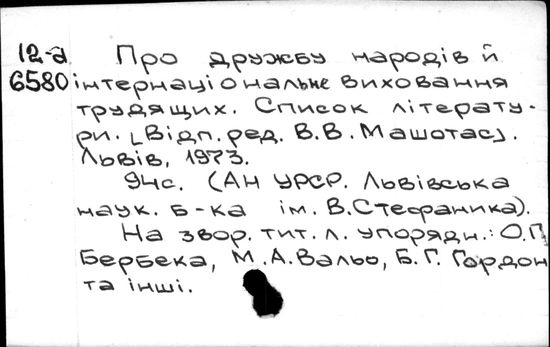 12-а Про дружбу народів й
6580 інтернаціональне виховання
трудящих. Список літерату-
ри. [Відп. ред. В.В. Машотас].
Львів, 1973.
94с. (АН УРСР. Львівська
наук. б-ка ім. В.Стефаника).
На звор. тит. л. упорядн.: О.П.
Бербека, М.А.Вальо, Б.Г. Гордон
та інші.